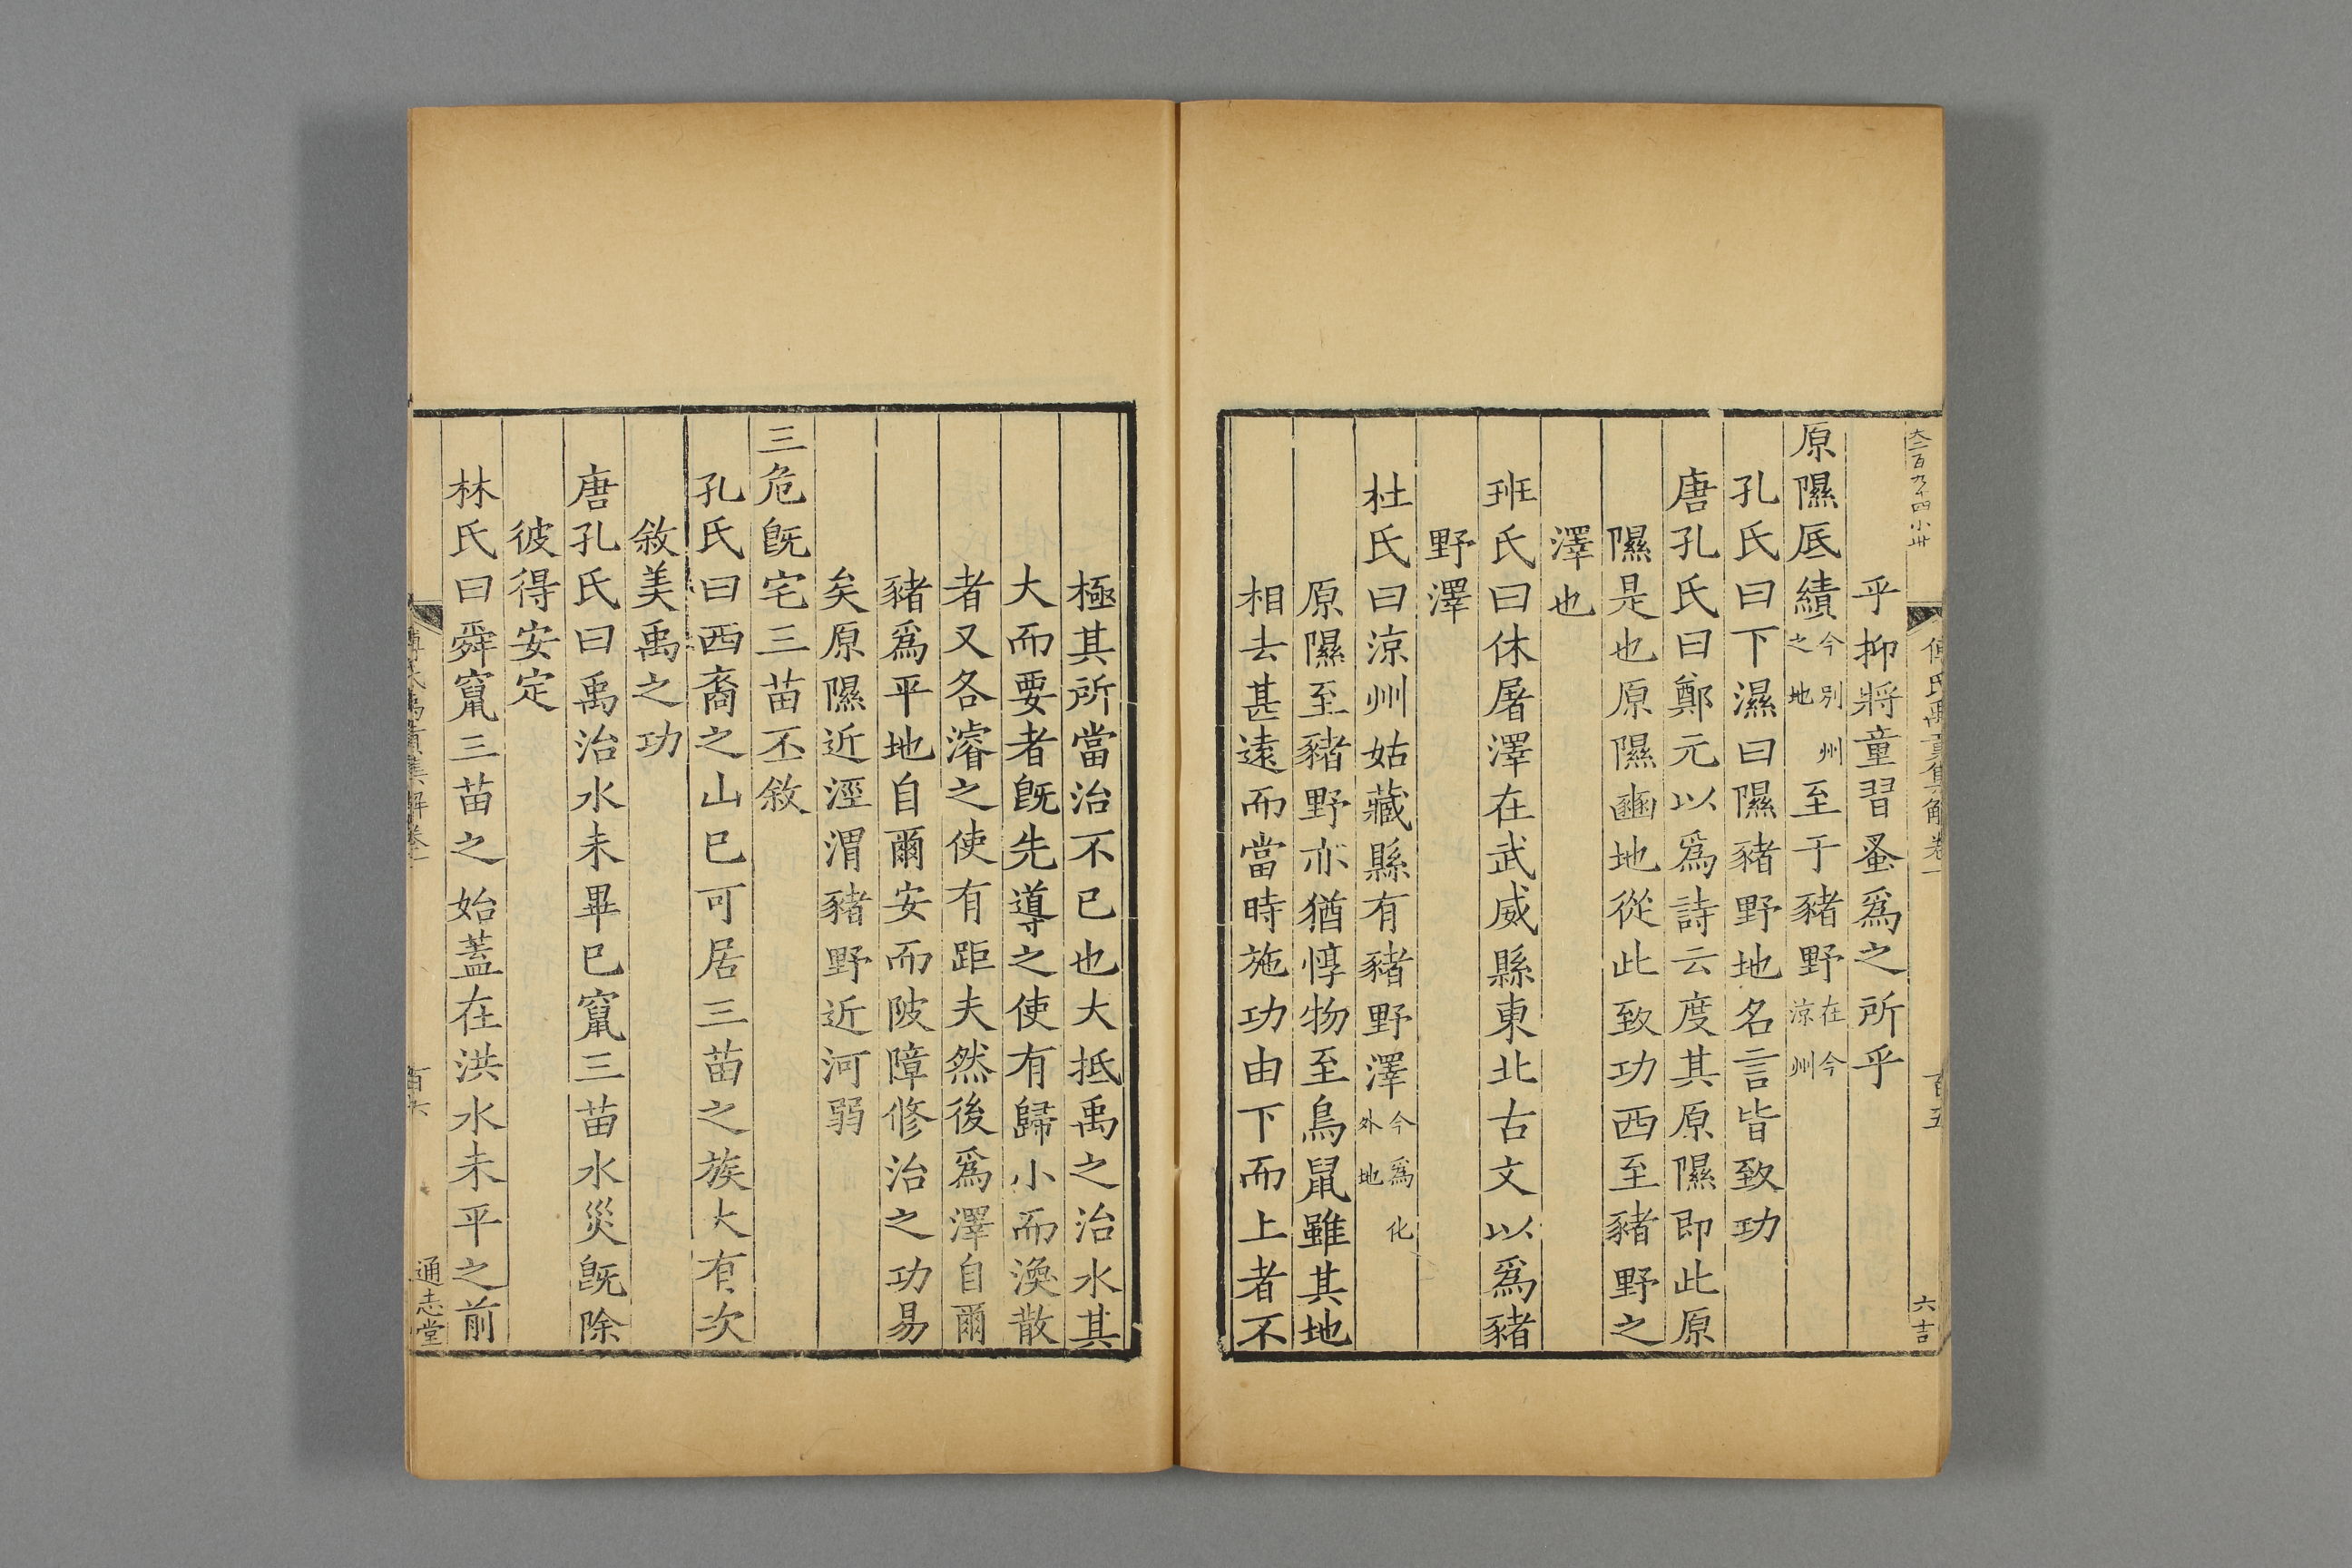 大二百九十四小卅
傅氏禹貢集解卷二
百五
六吉
乎抑將童習蚤爲之所乎
原隰底績今別州之地至于豬野在今涼州
孔氏曰下濕曰隰豬野地名言皆致功
唐孔氏曰鄭元以爲詩云度其原隰即此原
隰是也原隰豳地從此致功西至豬野之
澤也
班氏曰休屠澤在武威縣東北古文以爲豬
野澤
杜氏曰涼州姑藏縣有豬野澤今爲化外地
原隰至豬野亦猶惇物至鳥鼠雖其地
相去甚遠而當時施功由下而上者不
極其所當治不已也大抵禹之治水其
大而要者旣先導之使有歸小而渙散
者又各濬之使有距夫然後爲澤自爾
豬爲平地自爾安而陂障修治之功易
矣原隰近涇渭豬野近河弱
三危旣宅三苗丕敘
孔氏曰西裔之山已可居三苗之族大有次
敘美禹之功
唐孔氏曰禹治水未畢已竄三苗水災旣除
彼得安定
林氏曰舜竄三苗之始蓋在洪水未平之前
傅氏禹貢集解卷二
百六
通志堂